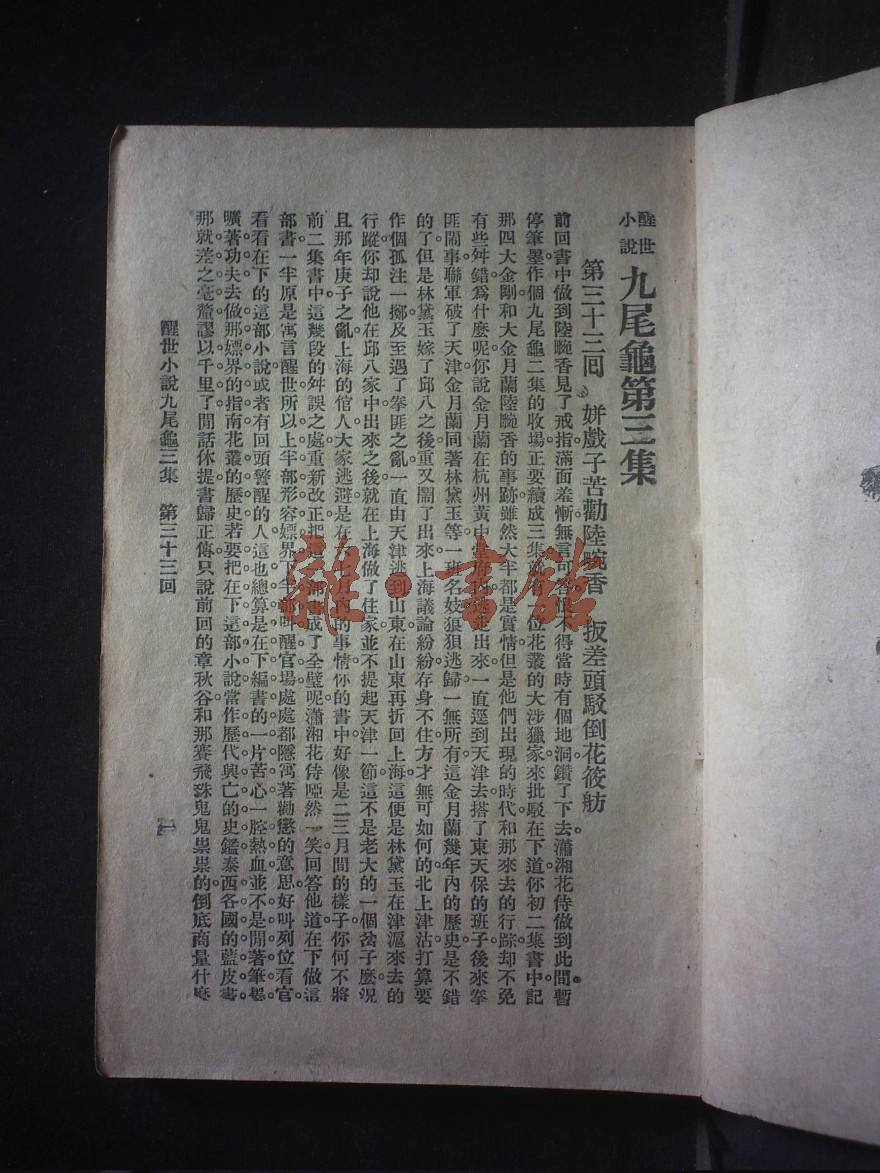 醒世小說 九尾龜第三集
第三十三回 姘戲子苦勸陸畹香 扳差頭駁倒花筱舫
前回書中做到陸畹香見了戒指滿面羞慚無言可答恨不得當時有個地洞鑽了下去瀟湘花侍做到此間暫
停筆墨作個九尾龜二集的收場正要續成三集就有一位花叢的大涉獵家來批駁在下道你初二集書中記
那四大金剛和大金月蘭陸畹香的事跡雖然大半都是實情但是他們出現的時代和那來去的行踪却不免
有些舛錯爲什麽呢你說金月蘭在杭州黃中堂府內逃走出來一直逕到天津去搭了東天保的班子後來拳
匪鬧事聯軍破了天津金月蘭同著林黛玉等一班名妓狼狽逃歸一無所有這金月蘭幾年內的歷史是不錯
的了但是林黛玉嫁了邱八之後重又鬧了出來上海議論紛紛存身不住方才無可如何的北上津沽打算要
作個孤注一擲及至遇了拳匪之亂一直由天津逃到山東在山東再折回上海這便是林黛玉在津滬來去的
行蹤你却說他在邱八家中出來之後就在上海做了住家並不提起天津一節這不是老大的一個岔子麽況
且那年庚子之亂上海的倌人大家逃避是在六七月內的事情你的書中好像是二三月間的樣子你何不將
前二集書中這幾段的舛誤之處重新改正把這一部書成了全璧呢瀟湘花侍啞然一笑回答他道在下做這
部書一半原是寓言醒世所以上半部形容嫖界下半部叫醒官場處處都隱寓著勸懲的意思好叫列位看官
看看在下的這部小說或者有回頭警醒的人這也總算是在下編書的一片苦心一腔熱血並不是閒著筆墨
曠著功夫去做那嫖界的指南花叢的歷史若要把在下這部小說當作歷代興亡的史鑑泰西各國的藍皮書
那就差之毫釐謬以千里了閒話休提書歸正傳只說前回的章秋谷和那賽飛珠鬼鬼祟祟的倒底商量什麽
醒世小說九尾龜三集 第三十三回
一
雜·書館